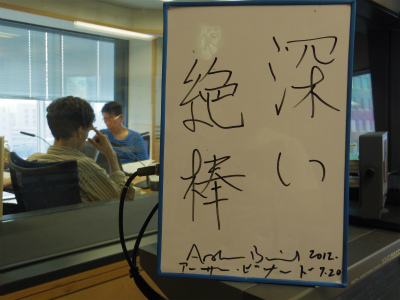 深い
絶棒
Arthur Binard 2012.
アーサー・ビナード 7.20